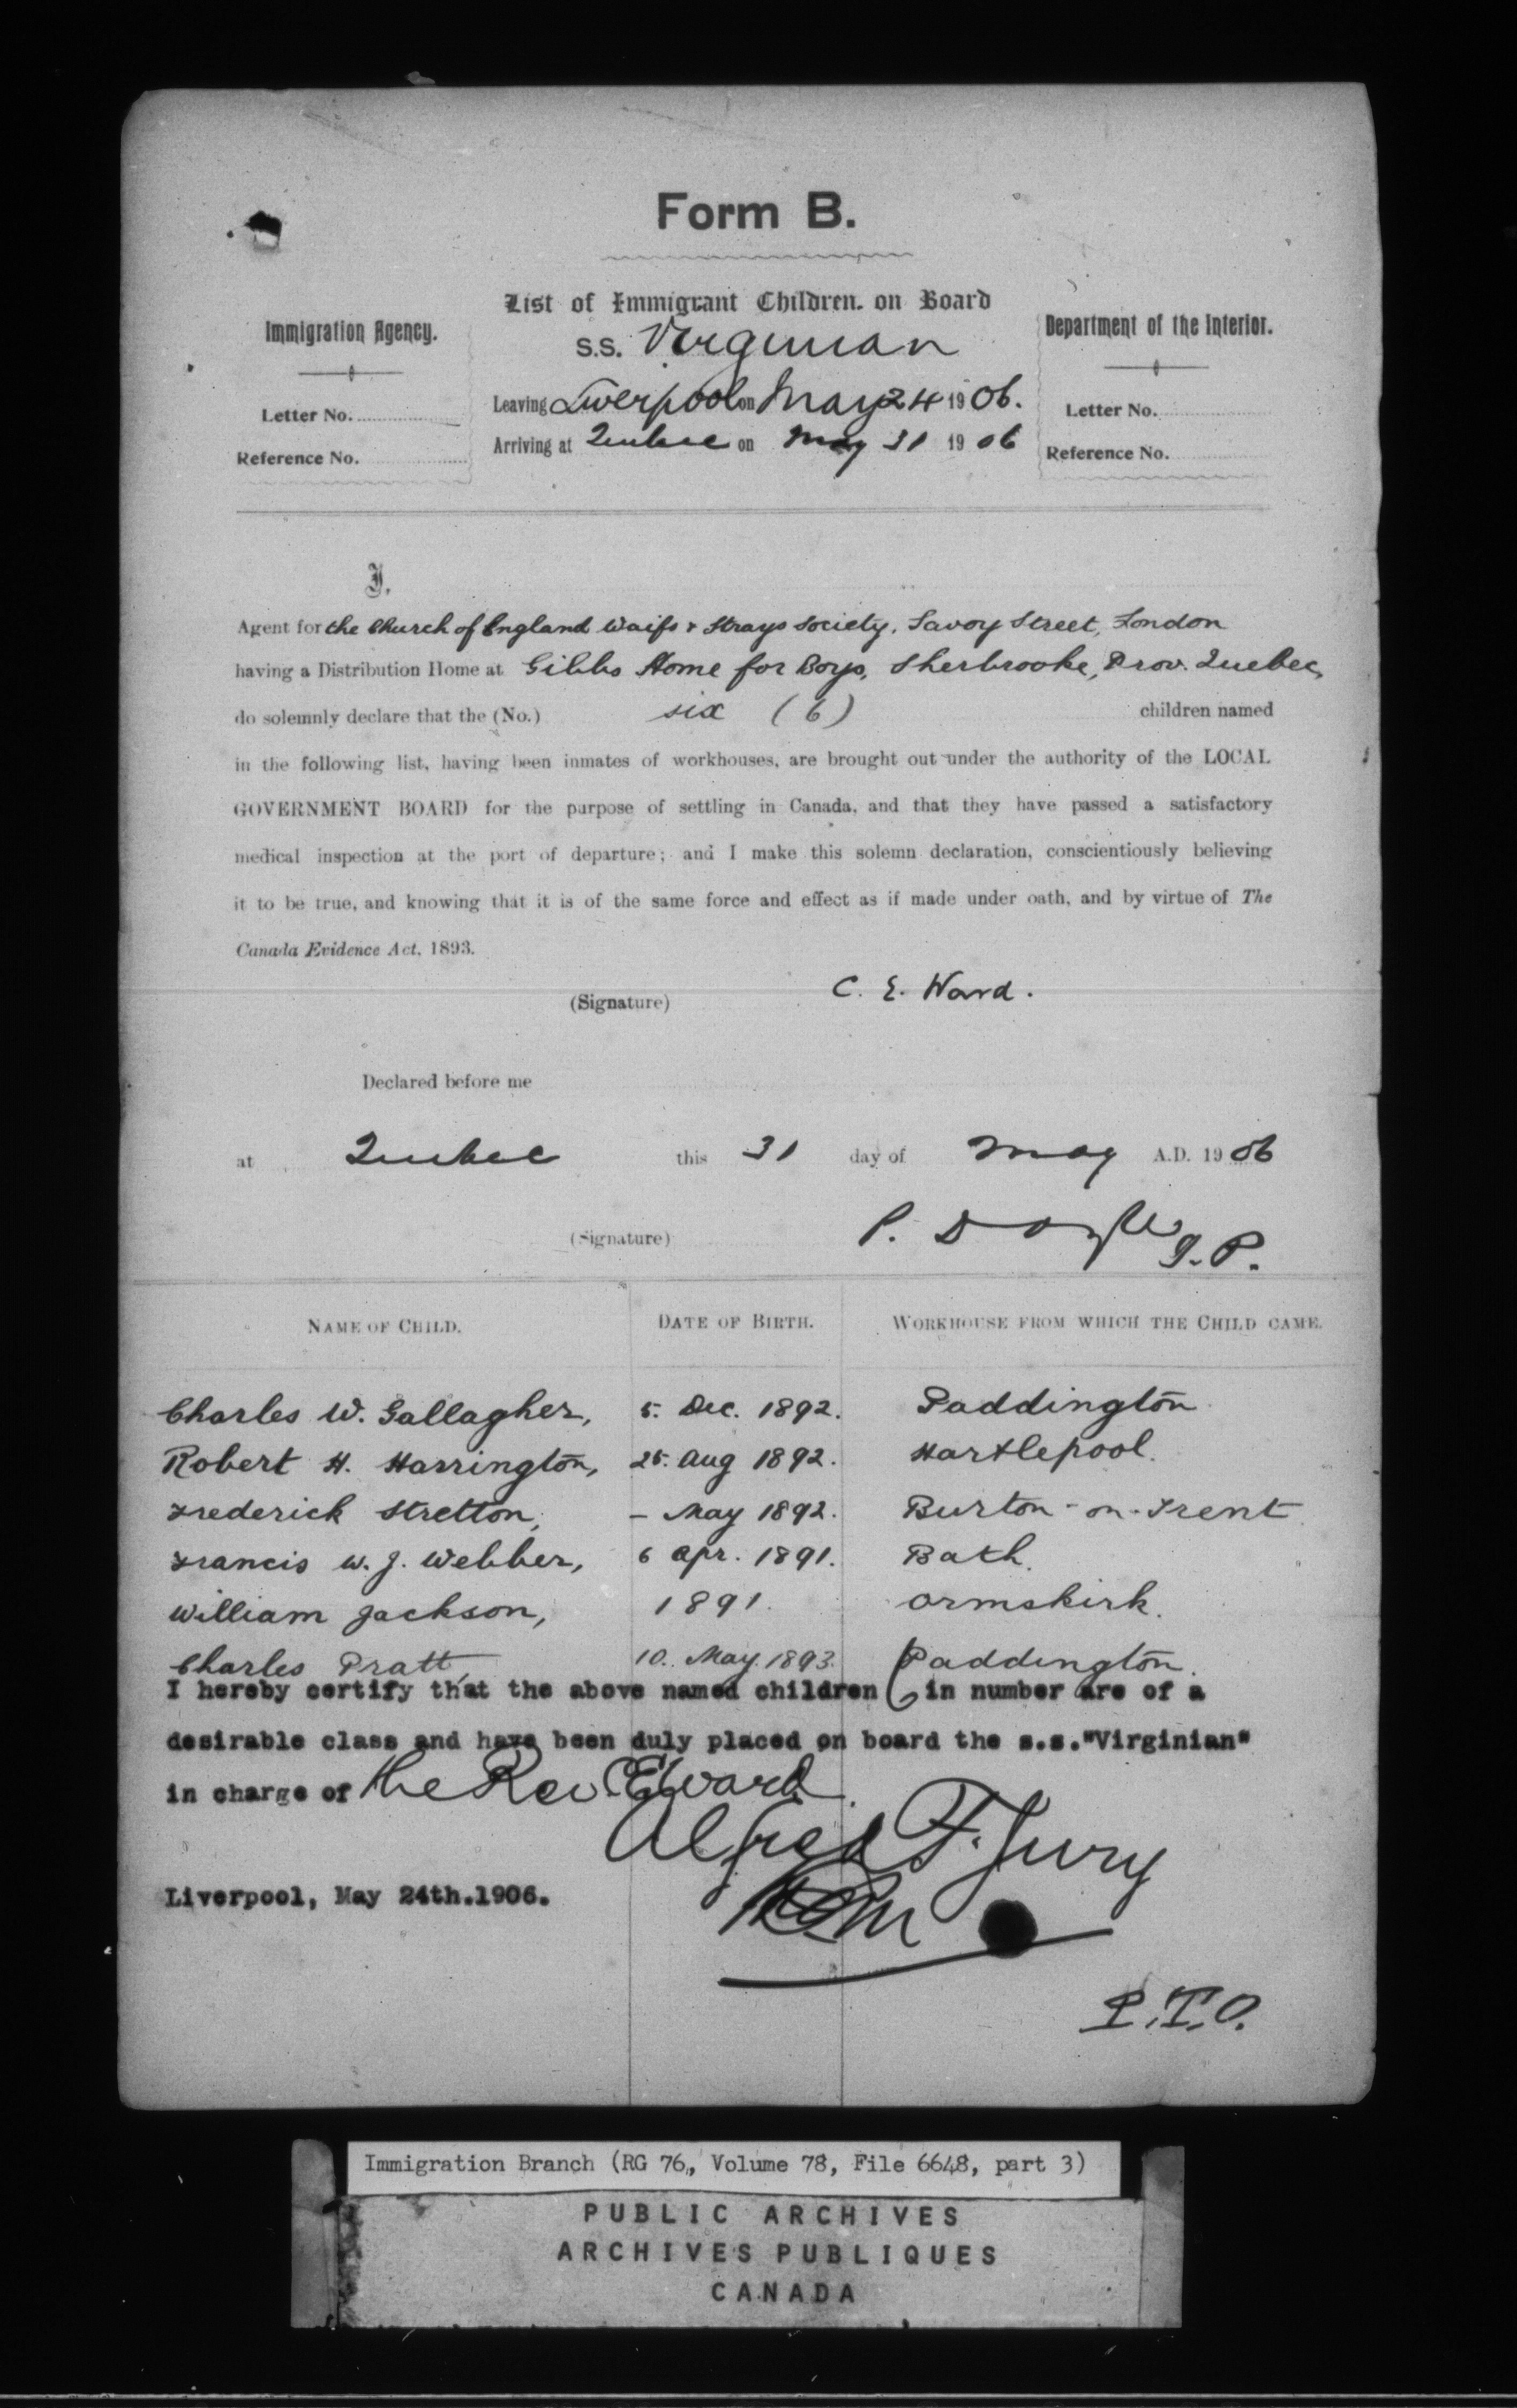 Form B.
List of Immigrant Children. on Board
S.S. Virginian
Leaving Liverpool on May 24 1906.
Arriving at Quebec on May 31 1906
Immigration Agency.
Letter No.
Reference No.
Department of the Interior.
Letter No.
Reference No.
I,
Agent for the Church of England Waifs & Strays Society, Savoy Street, London
having a Distribution Home at Gibbs Home for Boys, Sherbrooke, Prov. Quebec,
do solemnly declare that the (No.) six (6) children named
in the following list, having been inmates of workhouses, are brought out under the authority of the LOCAL
GOVERNMENT BOARD for the purpose of settling in Canada, and that they have passed a satisfactory
medical inspection at the port of departure; and I make this solemn declaration, conscientiously believing
it to be true, and knowing that it is of the same force and effect as if made under oath, and by virtue of The
Canada Evidence Act, 1893.
(Signature) C. E. Ward.
Declared before me
at Quebec this 31 day of May A.D. 1906
(Signature) P. Doyle J.P.
NAME OF CHILD. DATE OF BIRTH. WORKHOUSE FROM WHICH THE CHILD CAME.
Charles W. Gallagher, 5. Dec. 1892. Paddington
Robert H. Harrington, 25. Aug 1892. Hartlepool.
Frederick Stretton, – May 1892. Burton-on-Trent
Francis W. J. Webber, 6 Apr. 1891. Bath.
William Jackson, 1891. Ormskirk.
Charles Pratt, 10. May. 1893. Paddington.
I hereby certify that the above named children 6 in number are of a
desirable class and have been duly placed on board the s.s."Virginian"
in charge of the Rev. C E Ward.
Alfred F. Jury
Liverpool, May 24th.1906.
P.T.O.
Immigration Branch (RG 76, Volume 78, File 6648, part 3)
PUBLIC ARCHIVES
ARCHIVES PUBLIQUES
CANADA